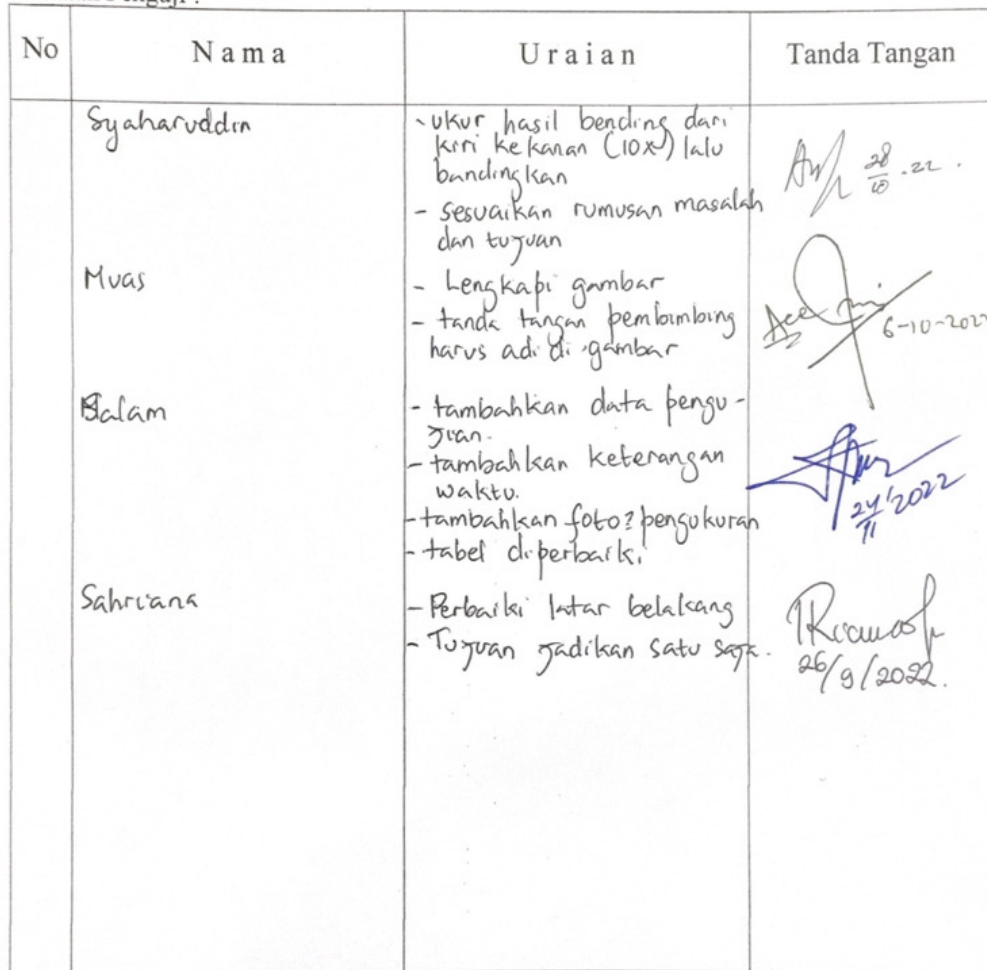 No
N a m a
U r a i a n
Tanda Tangan
Syaharuddin
- ukur hasil bending dari
kiri kekanan (10x) lalu
bandingkan
28/10.22.
- sesuaikan rumusan masalah
dan tujuan
Muas
- Lengkapi gambar
- tanda tangan pembimbing
harus adi di gambar
Acc
6-10-2022
Salam
- tambahkan data pengu-
jian.
- tambahkan keterangan
waktu.
24/11'2022
- tambahkan foto2 pengukuran
- tabel diperbaiki
Sahriana
- Perbaiki latar belakang
- Tujuan jadikan satu saja.
26/9/2022.